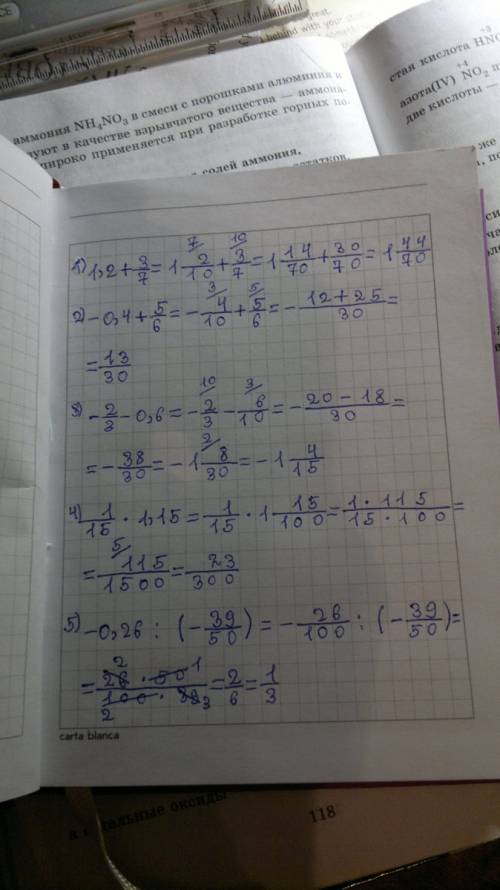 аммония NH₄NO₃ в смеси с порошками алюминия и
в качестве взрывчатого вещества —
широко применяется при разработке горных
солей аммония.
стая кислота
+4
азота(IV) NO₂
две кислоты —
же
1) 1,2 + 3/7 = 1 2/10 (7/) + 3/7 (10/) = 1 14/70 + 30/70 = 1 44/70
2) -0,4 + 5/6 = - 4/10 (3/) + 5/6 (5/) = - (12 + 25)/30 =
= 13/30
3) - 2/3 - 0,6 = - 2/3 (10/) - 6/10 (3/) = - (20 - 18)/30 =
= - 38/30 = -1 8/30 (2/) = -1 4/15
4) 1/15 · 1,15 = 1/15 · 1 15/100 = (1 · 115)/(15 · 100) =
= 115/1500 (5/) = 23/300
5) -0,26 : (- 39/50) = - 26/100 : (- 39/50) =
= (26 · 50)/(100 · 39) (2, 1, 2, 3) = 2/6 = 1/3
carta blanca
оксиды
118